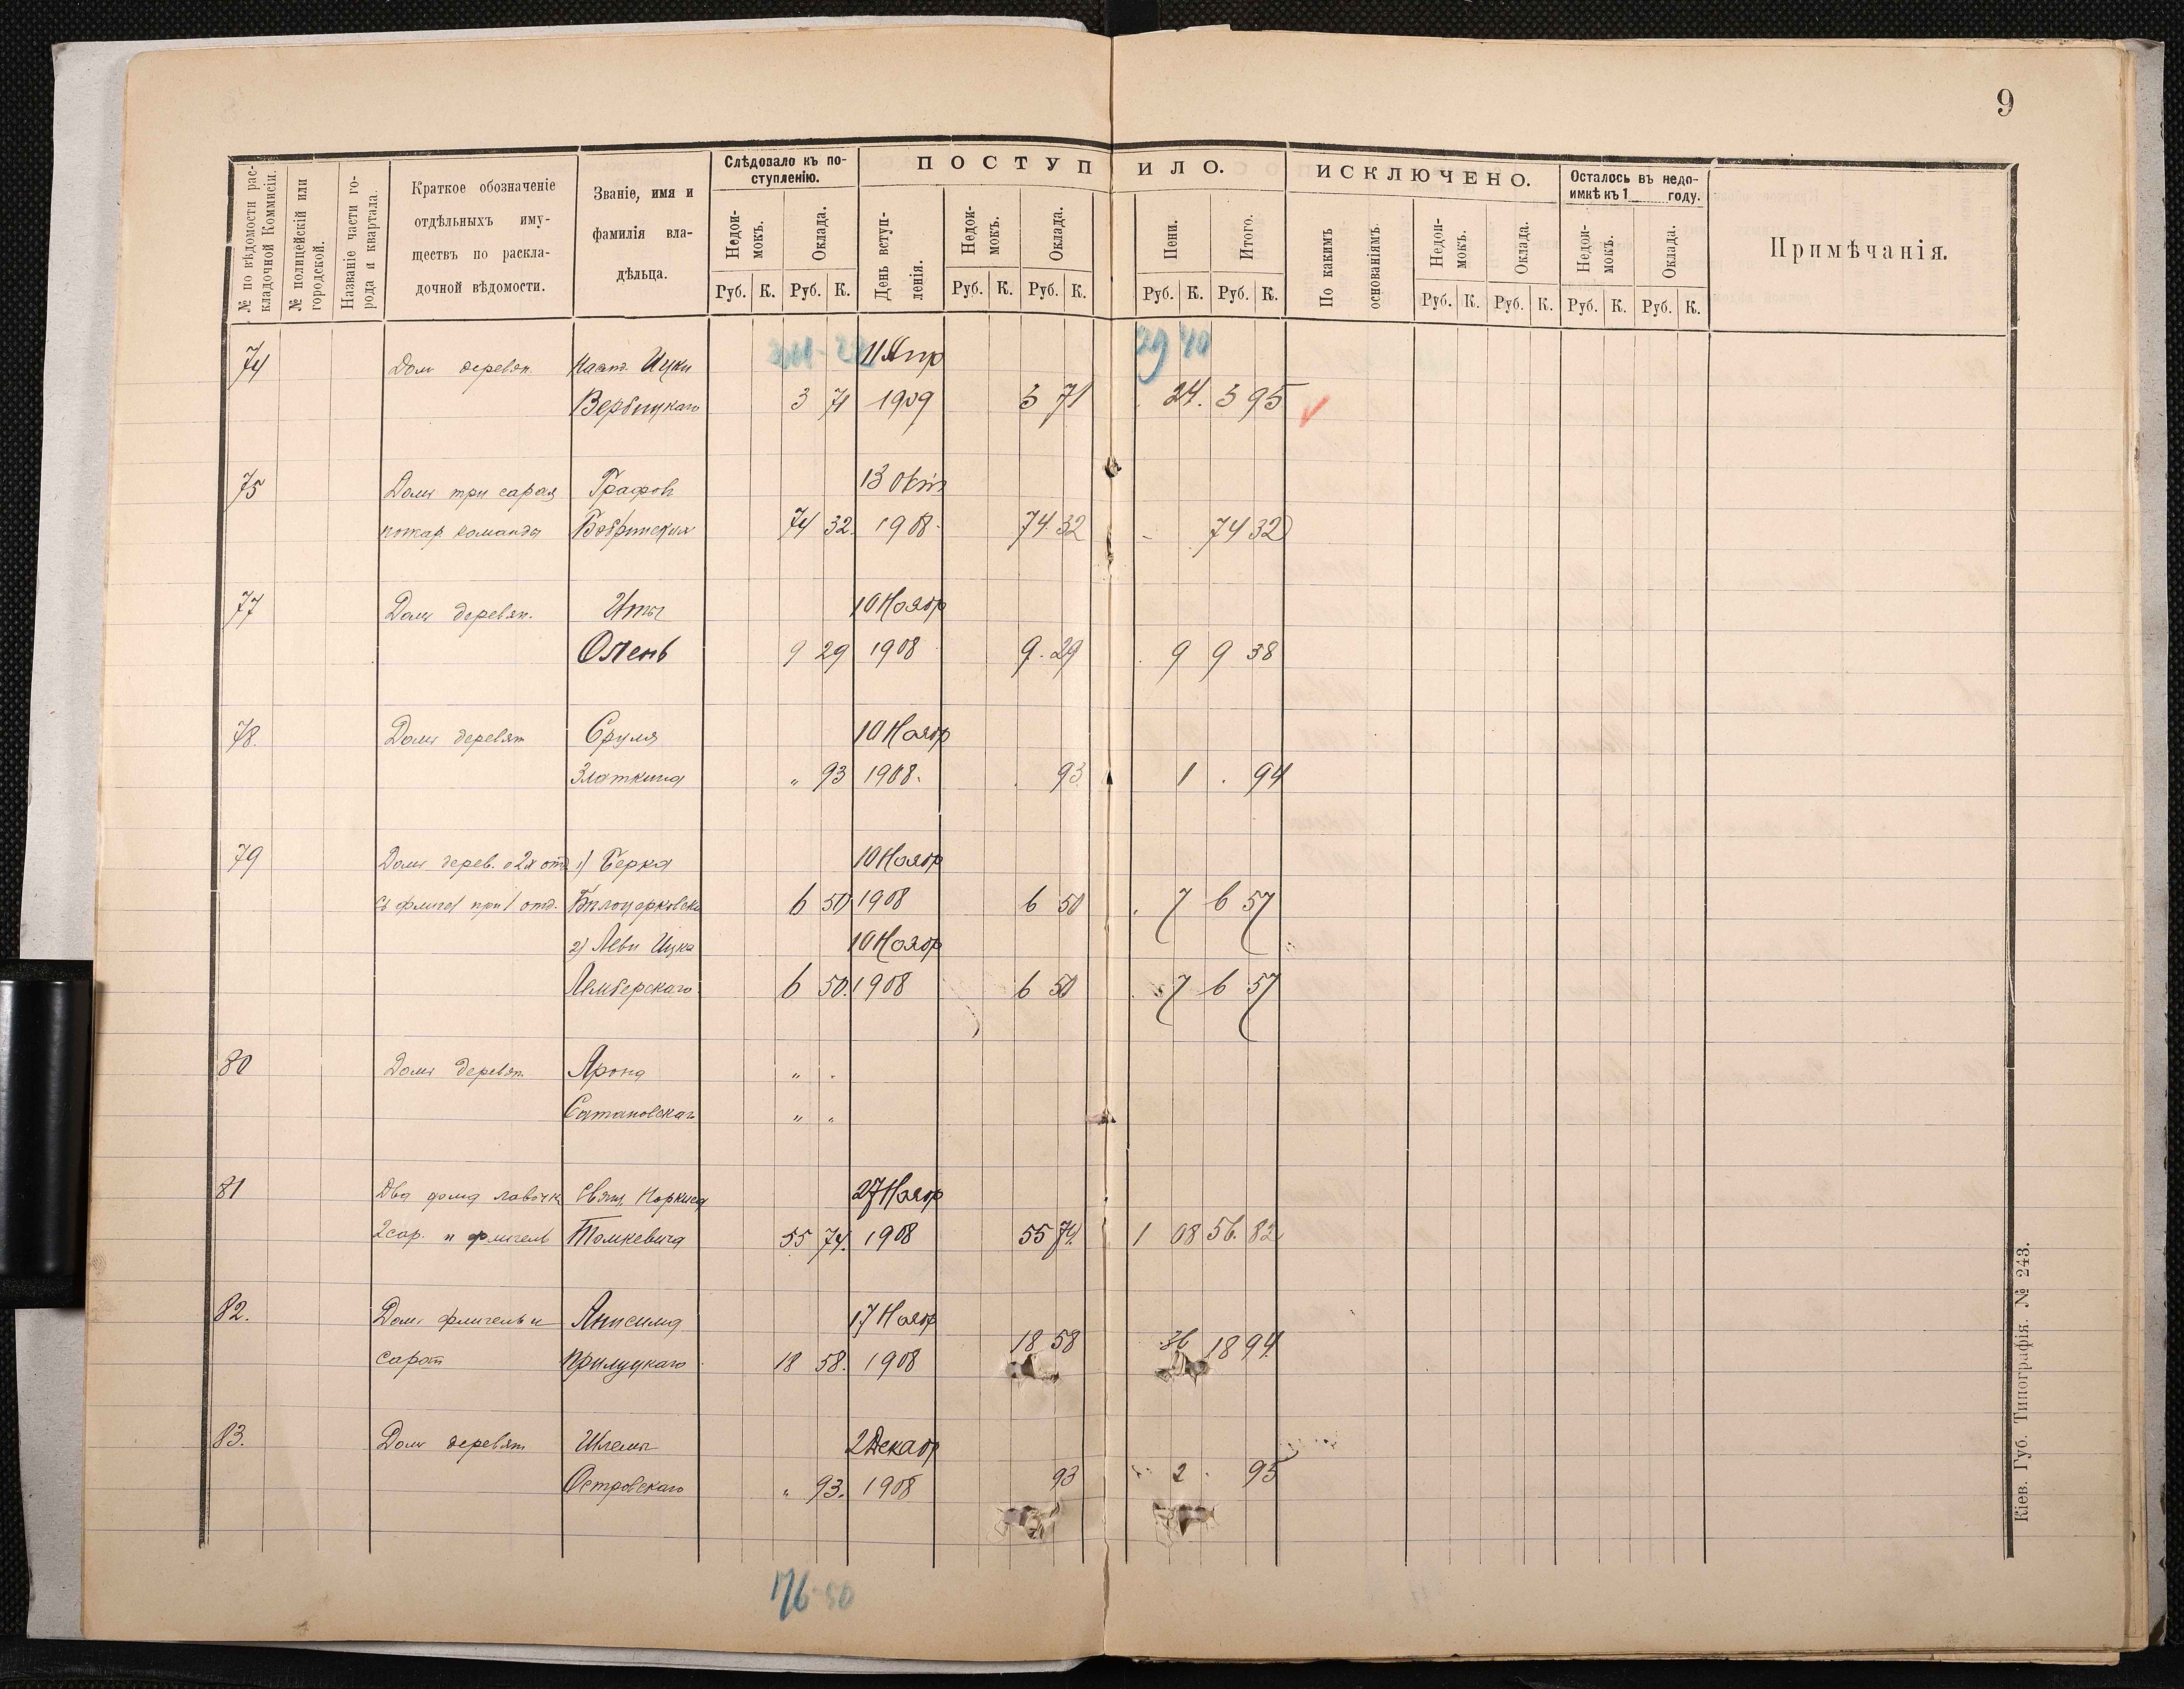 9
№ по вѣдомости рас-
кладочной Коммисіи.
№ полицейскій или
городской.
Названіе части го-
рода и квартала.
Краткое обозначеніе
отдѣльныхъ иму-
ществъ по раскла-
дочной вѣдомости.
Званіе, имя и
фамилія вла-
дѣльца.
Слѣдовало къ по-
ступленію.
Недои-
мокъ.
Оклада.
Руб. К. Руб. К.
ПОСТУПИЛО.
День вступ-
ленія.
Недои-
мокъ.
Оклада.
Пени.
Итого.
Руб. К. Руб. К. Руб. К. Руб. К.
ИСКЛЮЧЕНО.
По какимъ
основаніямъ.
Недои-
мокъ.
Оклада.
Руб. К. Руб. К.
Осталось въ недо-
имкѣ къ 1 году.
Недои-
мокъ.
Оклада.
Руб. К. Руб. К.
Примѣчанія.
29 40
74 Домъ деревян. Ицки 11 Апр
Вербицкаго 3 71 1909 3 71 24. 3 95
75 Домъ три сарая Графовъ 13 Окт
пожар команда Бобринскихъ 74 32. 1908. 74 32 - 74 32
77 Домъ деревян. Иты 10 Нояб
Олень 9 29 1908 9. 29 9 9 38
78. Домъ деревян Сруля 10 Нояб
Златкина " 93 1908. 93 1 . 94
79 Домъ дерев. о 2х отд 1) Берка 10 Нояб
съ флигел при 1 отд. Бѣлоцерковска 6 50 1908 6 50 7 6 57
2) Леви Ицка 10 Нояб
Лемберскаго 6 50. 1908 6 50 7 6 57
80 Домъ деревян Арона " .
Сатановскаго " "
81 Два дома лавочк Свящ. 27 Нояб
2 сар. и флигель Томкевича 55 74. 1908 55 74. 1 08 56. 82
82. Домъ флигель и Анисима 17 Нояб
18 58 36 18 94
сарай Прилуцкаго 18 58. 1908
83. Домъ деревян Шлемы 2 Декаб
Островскаго " 93. 1908 93 2 . 95
176-50
Кіев. Губ. Типографія. № 243.